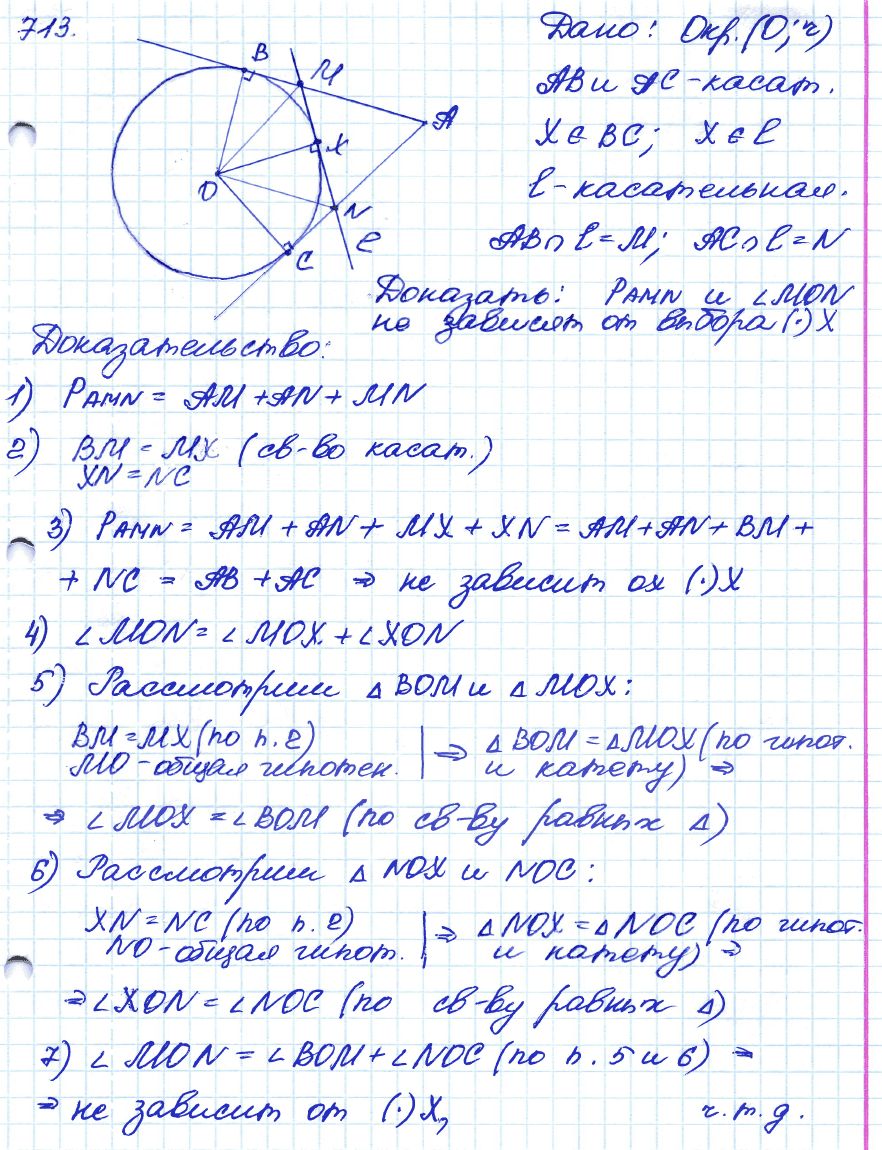 713.
Дано: Окр.(O;r)
AB и AC-касат.
X ∈ BC; X ∈ l
l-касательная.
AB∩l=M; AC∩l=N
B
M
A
X
O
N
C
l
Доказать: PAMN и ∠MON
не зависят от выбора (·)X
Доказательство:
1) PAMN = AM+AN+MN
2) BM=MX (св-во касат.)
XN=NC
3) PAMN = AM+AN+MX+XN=AM+AN+BM+
+NC = AB+AC ⇒ не зависит ох (·)X
4) ∠MON=∠MOX+∠XON
5) Рассмотрим △BOM и △MOX:
BM=MX(по п.2)
MO-общая гипотен.
⇒ △BOM=△MOX(по гипот.
и катету) ⇒
⇒ ∠MOX=∠BOM (по св-ву равных △)
6) Рассмотрим △NOX и NOC:
XN=NC(по п.2)
NO-общая гипот.
⇒ △NOX=△NOC (по гипот.
и катету) ⇒
⇒∠XON=∠NOC (по св-ву равных △)
7) ∠MON=∠BOM+∠NOC(по п.5 и 6) ⇒
⇒ не зависит от (·)X,
ч.т.д.